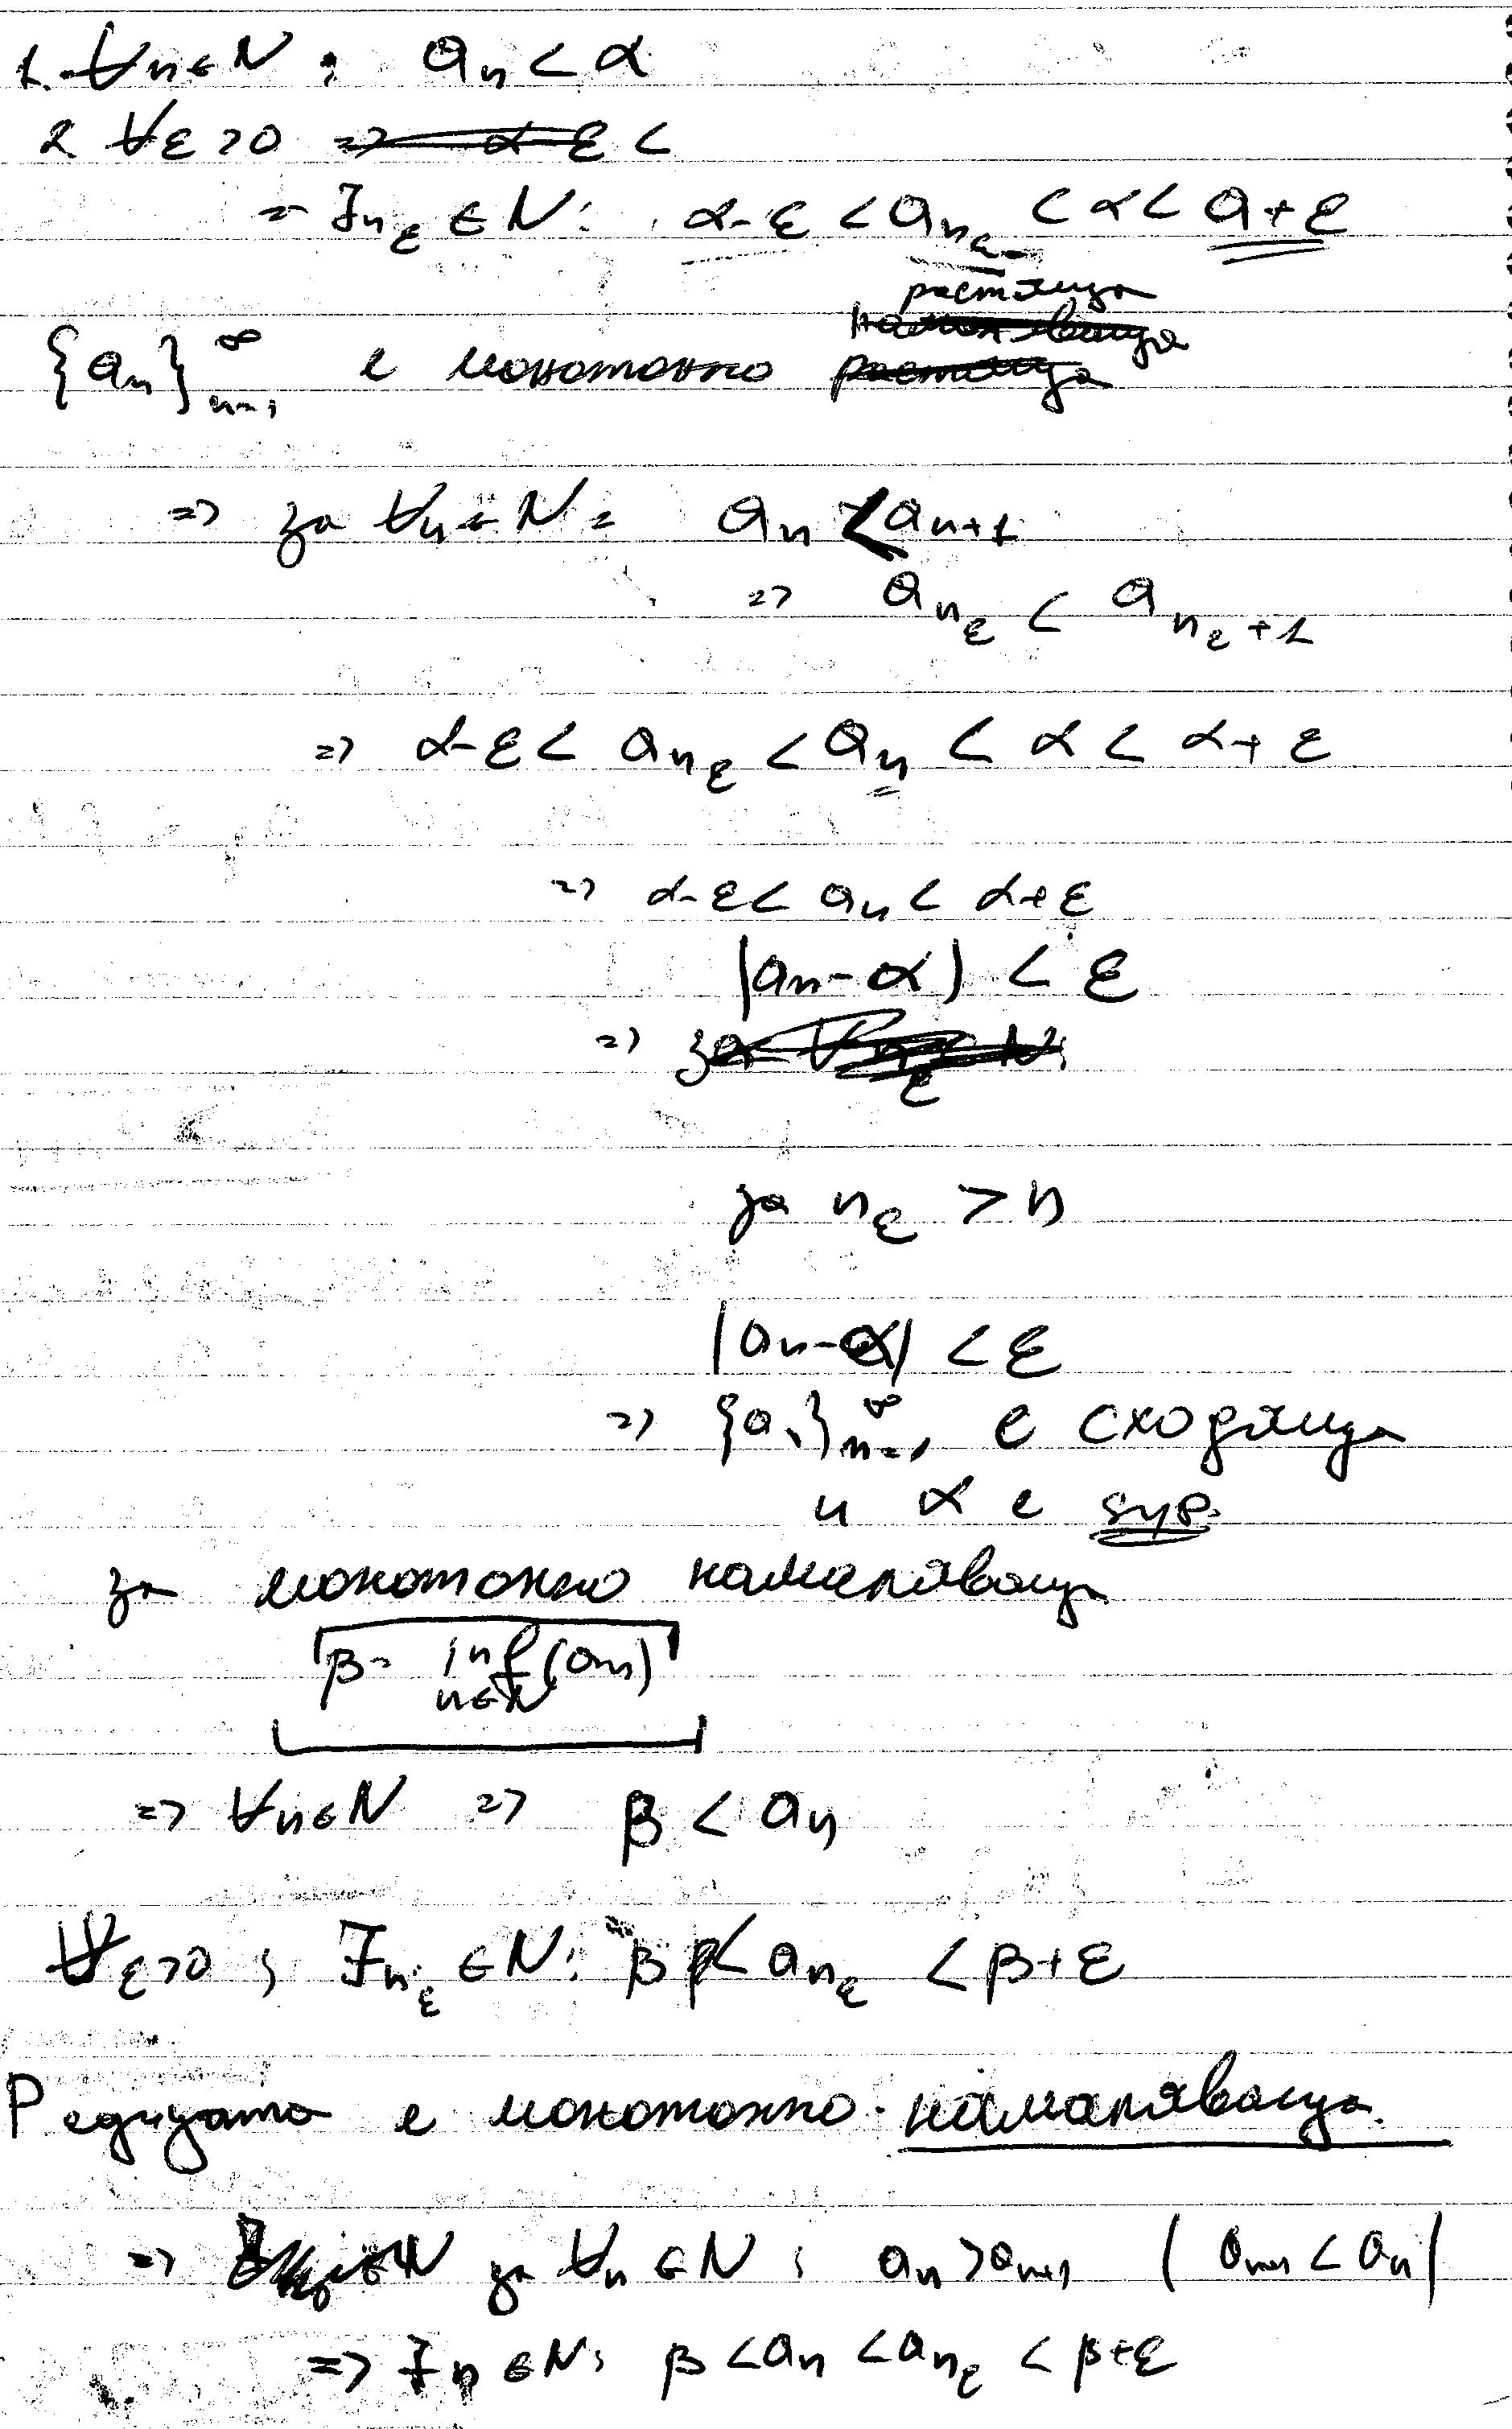 1. ∀n∈N : aₙ < α
2 ∀ε>0 => α-ε <
= ∃n_ε ∈ N: α-ε < a_{n_ε} < α < a+ε
растяща
намаляваща
{aₙ}_{n=1}^∞ е монотонно растяща
=> за ∀n∈N = aₙ < aₙ₊₁
=> a_{n_ε} < a_{n_ε+1}
=> α-ε < a_{n_ε} < aₙ < α < α+ε
=> α-ε < aₙ < α+ε
|aₙ-α| < ε
=> за ∀n_ε N:
за n_ε > n
|aₙ-α| < ε
=> {aₙ}_{n=1}^∞ е сходяща
и α е sup.
за монотонно намаляваща
β = inf(aₙ)
n∈N
=> ∀n∈N => β < aₙ
∀ε>0 ; ∃n_ε ∈N: β < a_{n_ε} < β+ε
Редицата е монотонно намаляваща.
=> за ∀n ∈N ; aₙ > aₙ₊₁ ( aₙ₊₁ < aₙ )
=> ∃n ∈N: β < aₙ < a_{n_ε} < β+ε